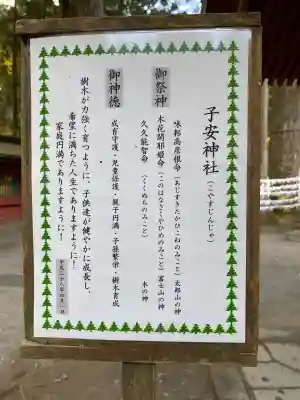 子安神社（こやすじんじゃ）
御祭神
味耜高彦根命（あじすきたかひこねのみこと）太郎山の神
木花開耶姫命（このはなさくやひめのみこと）富士山の神
久久能智命（くくぬちのみこと）木の神
御神徳
成育守護・児童修護・親子円満・子孫繁栄・樹木育成
樹木が力強く育つように、子供達が健やかに成長し、
希望に満ちた人生でありますように！
家庭円満でありますように！
平成二十八年四月一日